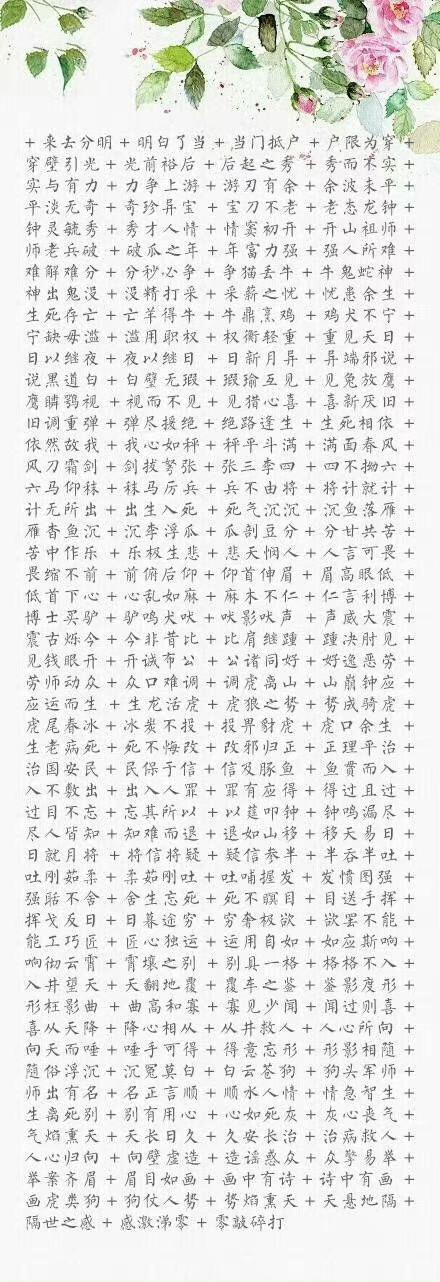 + 来去分明 + 明白了当 + 当门抵户 + 户限为穿 +
穿壁引光 + 光前裕后 + 后起之秀 + 秀而不实 +
实与有力 + 力争上游 + 游刃有余 + 余波未平 +
平淡无奇 + 奇珍异宝 + 宝刀不老 + 老态龙钟 +
钟灵毓秀 + 秀才人情 + 情窦初开 + 开山祖师 +
师老兵破 + 破瓜之年 + 年富力强 + 强人所难 +
难解难分 + 分秒必争 + 争猫丢牛 + 牛鬼蛇神 +
神出鬼没 + 没精打采 + 采薪之忧 + 忧患余生 +
生死存亡 + 亡羊得牛 + 牛鼎烹鸡 + 鸡犬不宁 +
宁缺毋滥 + 滥用职权 + 权衡轻重 + 重见天日 +
日以继夜 + 夜以继日 + 日新月异 + 异端邪说 +
说黑道白 + 白璧无瑕 + 瑕瑜互见 + 见兔放鹰 +
鹰瞵鹗视 + 视而不见 + 见猎心喜 + 喜新厌旧 +
旧调重弹 + 弹尽援绝 + 绝路逢生 + 生死相依 +
依然故我 + 我心如秤 + 秤平斗满 + 满面春风 +
风刀霜剑 + 剑拔弩张 + 张三李四 + 四不拗六 +
六马仰秣 + 秣马厉兵 + 兵不由将 + 将计就计 +
计无所出 + 出生入死 + 死气沉沉 + 沉鱼落雁 +
雁杳鱼沉 + 沉李浮瓜 + 瓜剖豆分 + 分甘共苦 +
苦中作乐 + 乐极生悲 + 悲天悯人 + 人言可畏 +
畏缩不前 + 前俯后仰 + 仰首伸眉 + 眉高眼低 +
低首下心 + 心乱如麻 + 麻木不仁 + 仁言利博 +
博士买驴 + 驴鸣犬吠 + 吠影吠声 + 声威大震 +
震古烁今 + 今非昔比 + 比肩继踵 + 踵决肘见 +
见钱眼开 + 开诚布公 + 公诸同好 + 好逸恶劳 +
劳师动众 + 众口难调 + 调虎离山 + 山崩钟应 +
应运而生 + 生龙活虎 + 虎狼之势 + 势成骑虎 +
虎尾春冰 + 冰炭不投 + 投畀豺虎 + 虎口余生 +
生老病死 + 死不悔改 + 改邪归正 + 正理平治 +
治国安民 + 民保于信 + 信及豚鱼 + 鱼贯而入 +
入不敷出 + 出出入人罪 + 罪有应得 + 得过且过 +
过目不忘 + 忘其所以 + 以莛叩钟 + 钟鸣漏尽 +
尽人皆知 + 知难而退 + 退如山移 + 移天易日 +
日就月将 + 将信将疑 + 疑信参半 + 半吞半吐 +
吐刚茹柔 + 柔茹刚吐 + 吐哺握发 + 发愤图强 +
强聒不舍 + 舍生忘死 + 死不瞑目 + 目送手挥 +
挥戈反日 + 日暮途穷 + 穷奢极欲 + 欲罢不能 +
能工巧匠 + 匠心独运 + 运用自如 + 如应斯响 +
响彻云霄 + 霄壤之别 + 别具一格 + 格格不入 +
入井望天 + 天翻地覆 + 覆车之鉴 + 鉴影度形 +
形枉影曲 + 曲高和寡 + 寡见少闻 + 闻过则喜 +
喜从天降 + 降心相从 + 从井救人 + 人心所向 +
向天而唾 + 唾手可得 + 得意忘形 + 形影相随 +
随俗浮沉 + 沉冤莫白 + 白云苍狗 + 狗头军师 +
师出有名 + 名正言顺 + 顺水人情 + 情急智生 +
生离死别 + 别有用心 + 心如死灰 + 灰心丧气 +
气焰熏天 + 天长日久 + 久安长治 + 治病救人 +
人心归向 + 向壁虚造 + 造谣惑众 + 众擎易举 +
举案齐眉 + 眉目如画 + 画中有诗 + 诗中有画 +
画虎类狗 + 狗仗人势 + 势焰熏天 + 天悬地隔 +
隔世之感 + 感激涕零 + 零敲碎打